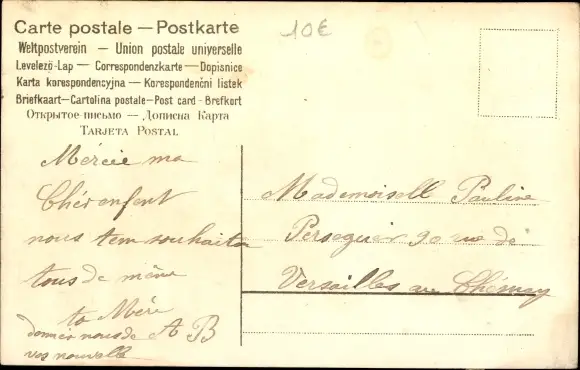 Carte postale — Postkarte
Weltpostverein — Union postale universelle
Levelező-Lap — Correspondenzkarte — Dopisnice
Karta korespondencyjna — Korespondenční listek
Briefkaart — Cartolina postale — Post card - Brefkort
Открытое письмо — Дописна Карта
TARJETA POSTAL
10€
Mércie ma
Chér enfent
nous tem souhaita
tous de même
ta Mére
A B
donner nous de
vos nouvelle
Mademoisell Pauline
Perseguer 90 rue de
Versailles au Chénay